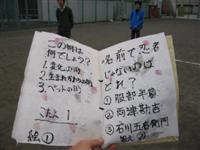 この州は
何でしょう?
1.
2.生まれ
3.ペットの州
こたえ 1
絵①
名前で忍者
じゃないのは
どれ?
①服部半蔵
②両津勘吉
③石川五右衛門
答え ②